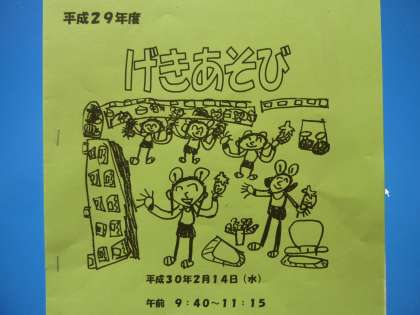 平成29年度
げきあそび
平成30年2月14日(水)
午前 9:40～11:15